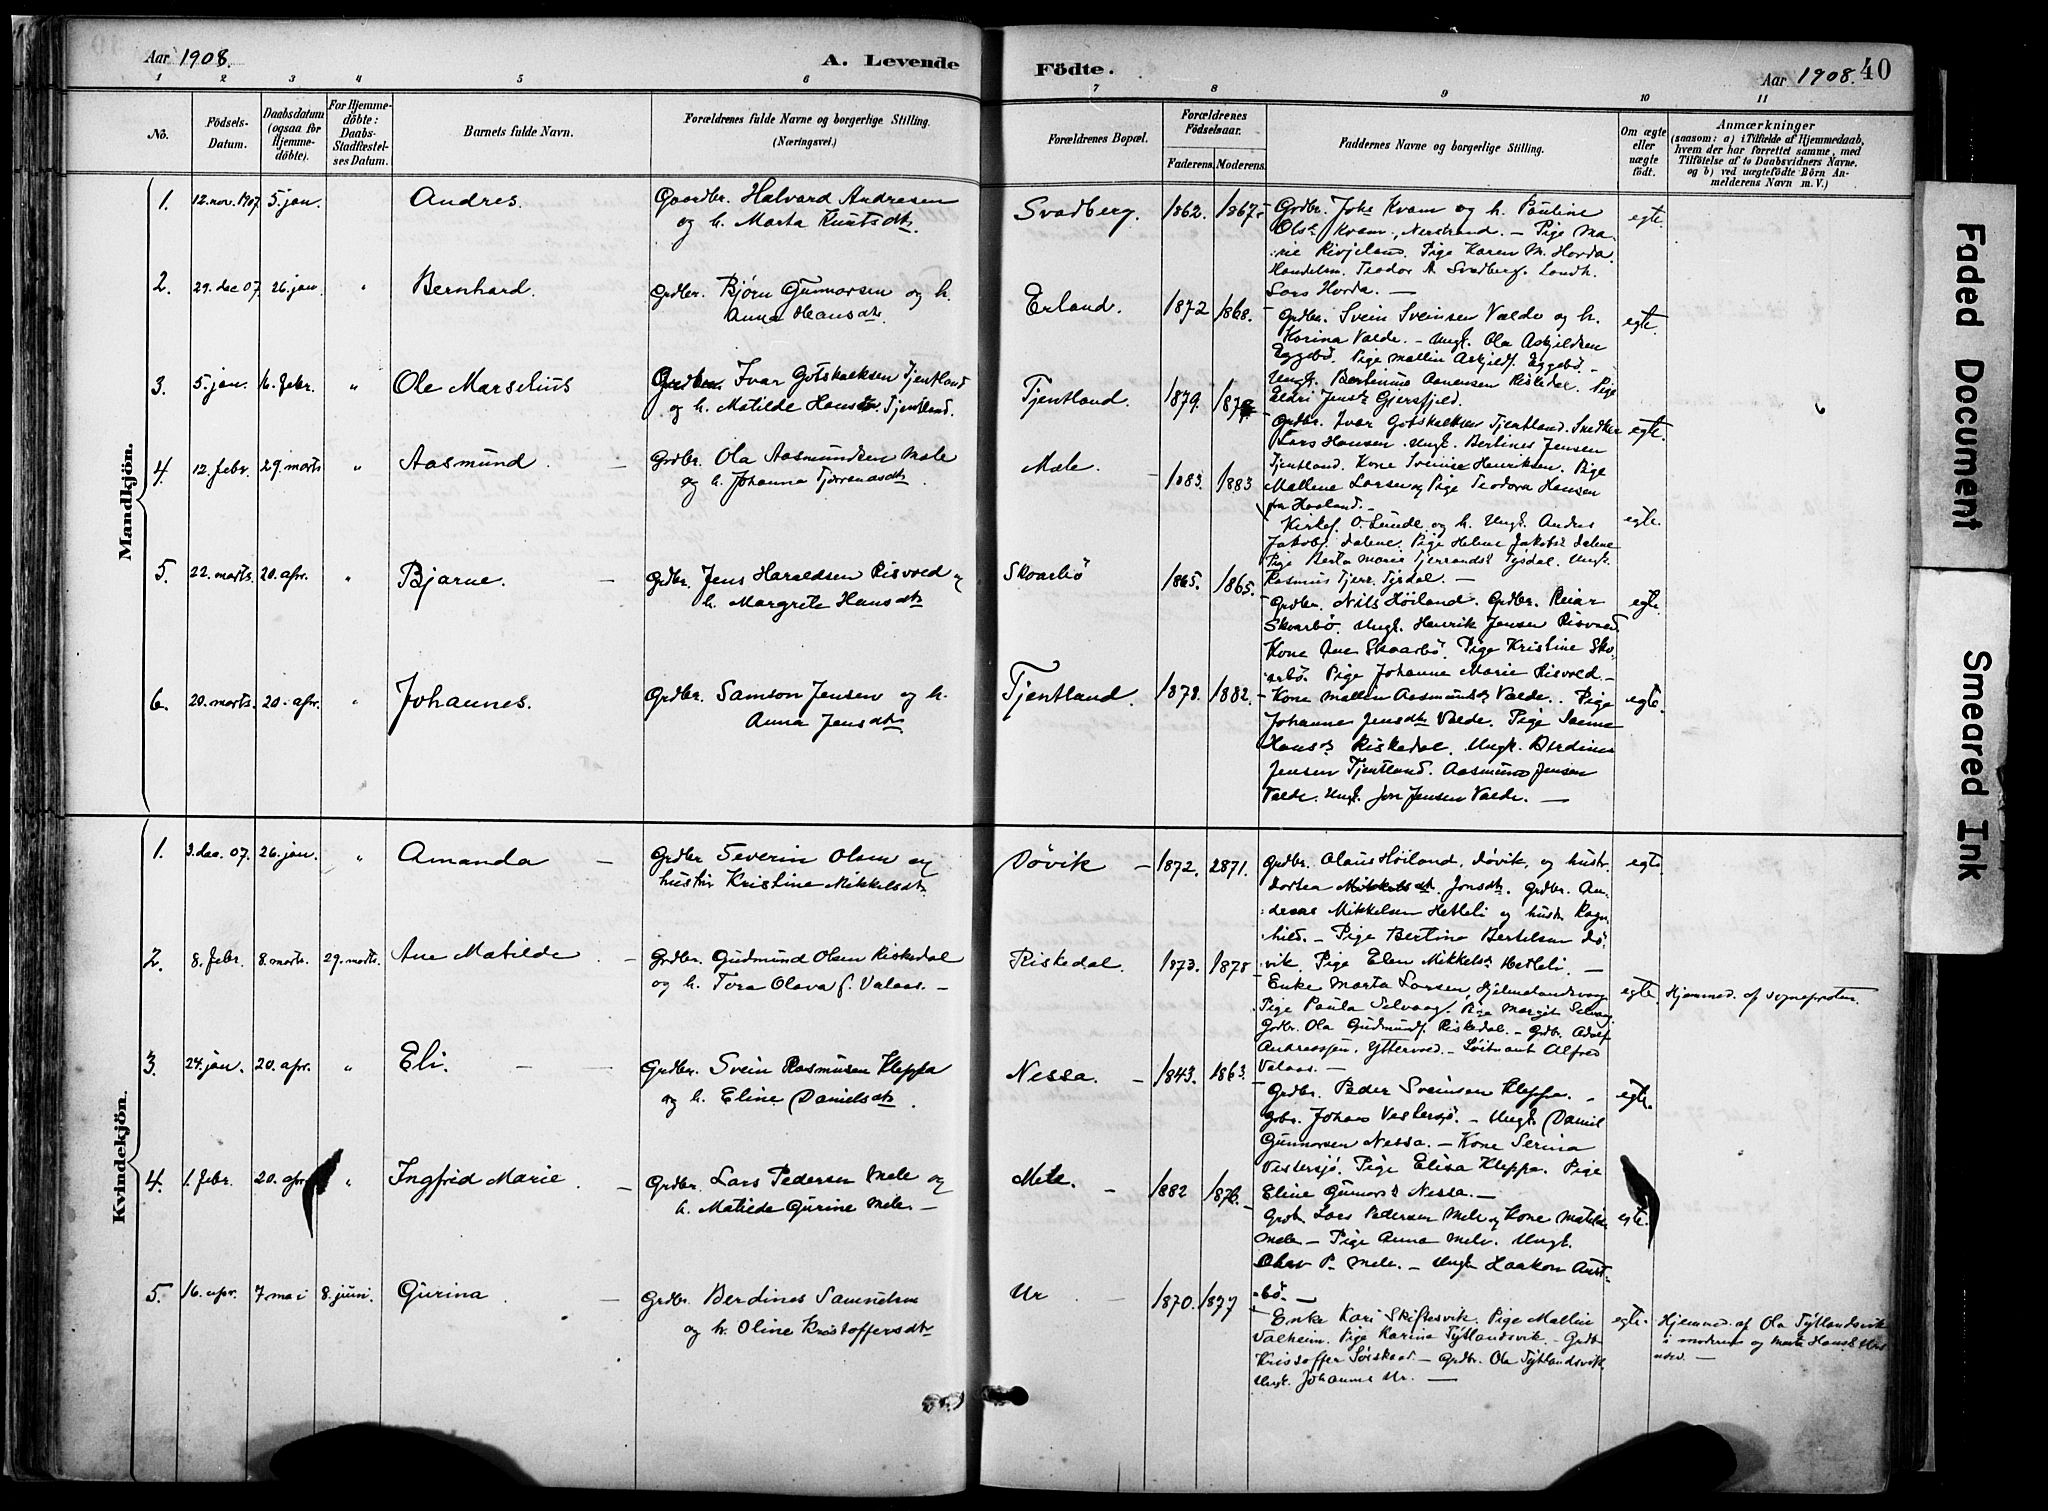 Aar 1908.
A. Levende Födte.
Aar 1908.
40
1 2 3 4 5 6 7 8 9 10 11
No.
Födsels-Datum.
Daabsdatum (ogsaa for Hjemmedöbte).
For Hjemmedöbte: Daabs-Stadfæstelses Datum.
Barnets fulde Navn.
Forældrenes fulde Navne og borgerlige Stilling. (Næringsvei.)
Forældrenes Bopæl.
Forældrenes Födselsaar.
Faderens. Moderens.
Faddernes Navne og borgerlige Stilling.
Om ægte eller uægte födt.
Anmærkninger
(saasom: a) i Tilfælde af Hjemmedaab,
hvem der har forrettet samme, med
Tilföielse af to Daabsvidners Navne.
og b) ved uægtefödte Börn An-
melderens Navn m. V.)
Mandkjön.
1. 12. nov. 1907 5. jan. Andres. Gaardbr. Halvard Andresen
og h. Marta Knutsdtr.
Svadberg. 1862. 1867.
Grdbr. Johs Kvam og h. Pauline
Olsdr Kvam, Nerstrand. — Pige Ma-
rie Pige Karen M. Horda.
Handelsm. Teodor A. Svadberg. Landh.
Lars Horda. —
egte.
2. 29. dec 07. 26. jan. " Bernhard. Grdbr. Bjørn Gunnarsen og h.
Anna Hansdtr.
Erland. 1872 1868.
Grdbr. Svein Sveinsen Valde og h.
Karina Valde. — Ungk. Ola Askjildsen
Eggebö. Pige Mallin Askjildsd. Eggebö. —
Ungk. Bertinius Aanensen Riskedal. Pige
Eldri Jensdr Gjersfjeld.
egte.
3. 5. jan. 16. febr. " Ole Marselius Grdbr. Ivar Gotskalksen Tjentland
og h. Matilde Hansdtr. Tjentland.
Tjentland. 1879.
Grdbr. Ivar Gotskalksen Tjentland. Snedker
Lars Hansen. Ungk. Bertines Jensen
Tjentland. Kone Henriksen. Pige
Mallene Larsen og Pige Teodora Hansen
fra Hasland. —
egte.
4. 12. febr. 29. marts " Aasmund. — Grdbr. Ola Aasmundsen Mæle
og h. Johanna
Mæle. — 1883. 1883
Kirkes. O. Lunde og h. Ungk. Andres
Jakobs. Dalene. Pige Helene Jakobsdr Dalene
Pige Berta Marie Tysdal. Ungk.
Rasmus Tjerr. Tysdal. —
egte.
5. 22. marts. 20. apr. " Bjarne. — Grdbr. Jens Haraldsen Risvold og
h. Margrete Hansdtr.
Skaarbö 1865. 1865.
Grdbr. Nils Höiland. Grdbr. Reiar
Skaarbö. Ungk. Henrik Jensen Risvold.
Kone Ane Skaarbö. Pige Kristine Ska-
arbö. Pige Johanne Marie Risvold —
egte.
6. 20. marts. 20. apr. " Johannes. Grdbr. Samson Jensen og h.
Anna Jensdtr.
Tjentland. 1878. 1882.
Kone Mallin Aasmundsdr Valde. Pige
Johanne Jensdtr Valde. Pige
Hansdr Riskedal. Ungk. Berdines
Jensen Tjentland. Aasmund Jensen
Valde. Ungk. Jon Jensen Valde. —
egte.
Kvindekjön.
1. 3. dec. 07. 26. jan. " Amanda — Grdbr Severin Olsen og
hustru Kristine Mikkelsdtr.
Dövik — 1872. 2871.
Grdbr. Olaus Höiland, Dövik, og hustr.
Dortea Mikkelsdt. Jonsdtr. Grdbr. An-
dreas Mikkelsen Hetleli og hustr. Ragn-
hild. — Pige Bertina Bertelsen Dö-
vik. Pige Elen Mikkelsdr Hetleli. —
egte
2. 8. febr. 8. marts. 29. marts. Ane Matilde — Grdbr. Gudmund Olsen Riskedal
og h. Tora Olava f. Valaas. —
Riskedal. 1873. 1878
Enke Marta Larsen, Hjelmelandsvaag.
Pige Paula Selvaag. Pige Margit Selvaag
Grdbr. Ola Gudmunds. Riskedal. — Grdbr. Adolf
Andreassen, Yttervod. — Löitnant Alfred
Valaas. —
egte. Hjemmed. af sogneprsten.
3. 24. jan. 20. apr. " Eli. — Grdbr. Svein Rasmusen Kleppa
og h. Eline Danielsdtr.
Nessa. — 1843. 1863.
Grdbr. Peder Sveinsen Kleppa. —
Grdbr. Johan Vestersjö. — Ungk. Daniel
Gunnarsen Nessa. — Kone Serina
Vestersjö. Pige Elisa Kleppa. Pige
Eline Gunnarsdr Nessa. —
egte.
4. 1. febr. 20. apr " Ingfrid Marie. — Grdbr. Lars Pedersen Mele og
h. Matilde Gurine Mele. —
Mele. — 1882 1876.
Grdbr. Lars Pedersen Mele og Kone Matilde
Mele — Pige Anna Mele. Ungk.
Olav P. Mele. — Ungk. Haakon Aust-
bö. —
egte.
5. 16. apr. 7 mai 8. juni. Gurina. — Grdbr. Berdines Samuelsen
og h. Oline Kristoffersdtr
Ur — 1870. 1877
Enke Kari Skiftesvik. Pige Mallin
Valheim. Pige Karina Tytlandsvik. — Grdbr
Kristoffer Sörskaar. — Grdbr. Ola Tytlandsvik.
Ungk. Johannes Ur. —
egte. Hjemmed. af Ola Tytlandsvik
moderen og Marta Hansdr
Faded Document
Smeared Ink